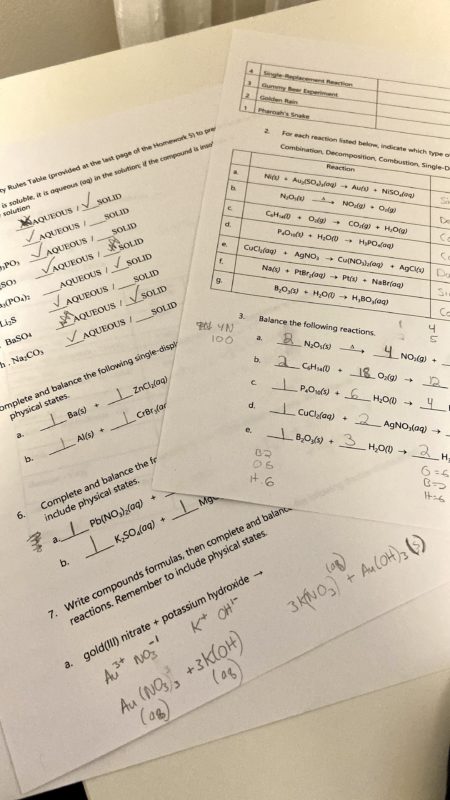 4 Single-Replacement Reaction
3 Gummy Bear Experiment
2 Golden Rain
1 Pharoah's Snake
2. For each reaction listed below, indicate which type o
Combination, Decomposition, Combustion, Single-D
Reaction
a. Ni(s) + Au₂(SO₄)₃(aq) → Au(s) + NiSO₄(aq)
b. N₂O₅(s) → NO₂(g) + O₂(g)
c. C₆H₁₄(l) + O₂(g) → CO₂(g) + H₂O(g)
d. P₄O₁₀(s) + H₂O(l) → H₃PO₄(aq)
e. CuCl₂(aq) + AgNO₃ → Cu(NO₃)₂(aq) + AgCl(s)
f. Na(s) + PtBr₂(aq) → Pt(s) + NaBr(aq)
g. B₂O₃(s) + H₂O(l) → H₃BO₃(aq)
3. Balance the following reactions.
a. 2 N₂O₅(s) → 4 NO₂(g) +
b. 2 C₆H₁₄(l) + 18 O₂(g) → 12
c. 1 P₄O₁₀(s) + 6 H₂O(l) → 4
d. 1 CuCl₂(aq) + 2 AgNO₃(aq) →
e. 1 B₂O₃(s) + 3 H₂O(l) → 2 H₃
4N
10O
B=2
O=6
H=6
y Rules Table (provided at the last page of the Homework 5) to pre
is soluble, it is aqueous (aq) in the solution; if the compound is insol
solution
AQUEOUS / ✓ SOLID
✓ AQUEOUS / SOLID
✓ AQUEOUS / SOLID
₃PO₃ ✓ AQUEOUS / SOLID
SO₃ AQUEOUS / ✓ SOLID
₃(PO₄)₂ ✓ AQUEOUS / SOLID
Li₂S AQUEOUS / ✓ SOLID
BaSO₄ ✓ AQUEOUS / SOLID
h. Na₂CO₃
omplete and balance the following single-displ
physical states.
a. 1 Ba(s) + 1 ZnCl₂(aq)
b. 1 Al(s) + 1 CrBr₃(aq
6. Complete and balance the fo
include physical states.
a. 1 Pb(NO₃)₂(aq) +
b. 1 K₂SO₄(aq) + 1 Mg
7. Write compounds formulas, then complete and balanc
reactions. Remember to include physical states.
a. gold(III) nitrate + potassium hydroxide →
Au³⁺ NO₃⁻¹ K⁺ OH¹⁻
Au(NO₃)₃ + 3K(OH)
(aq) (aq)
3K(NO₃)(aq) + Au(OH)₃(s)